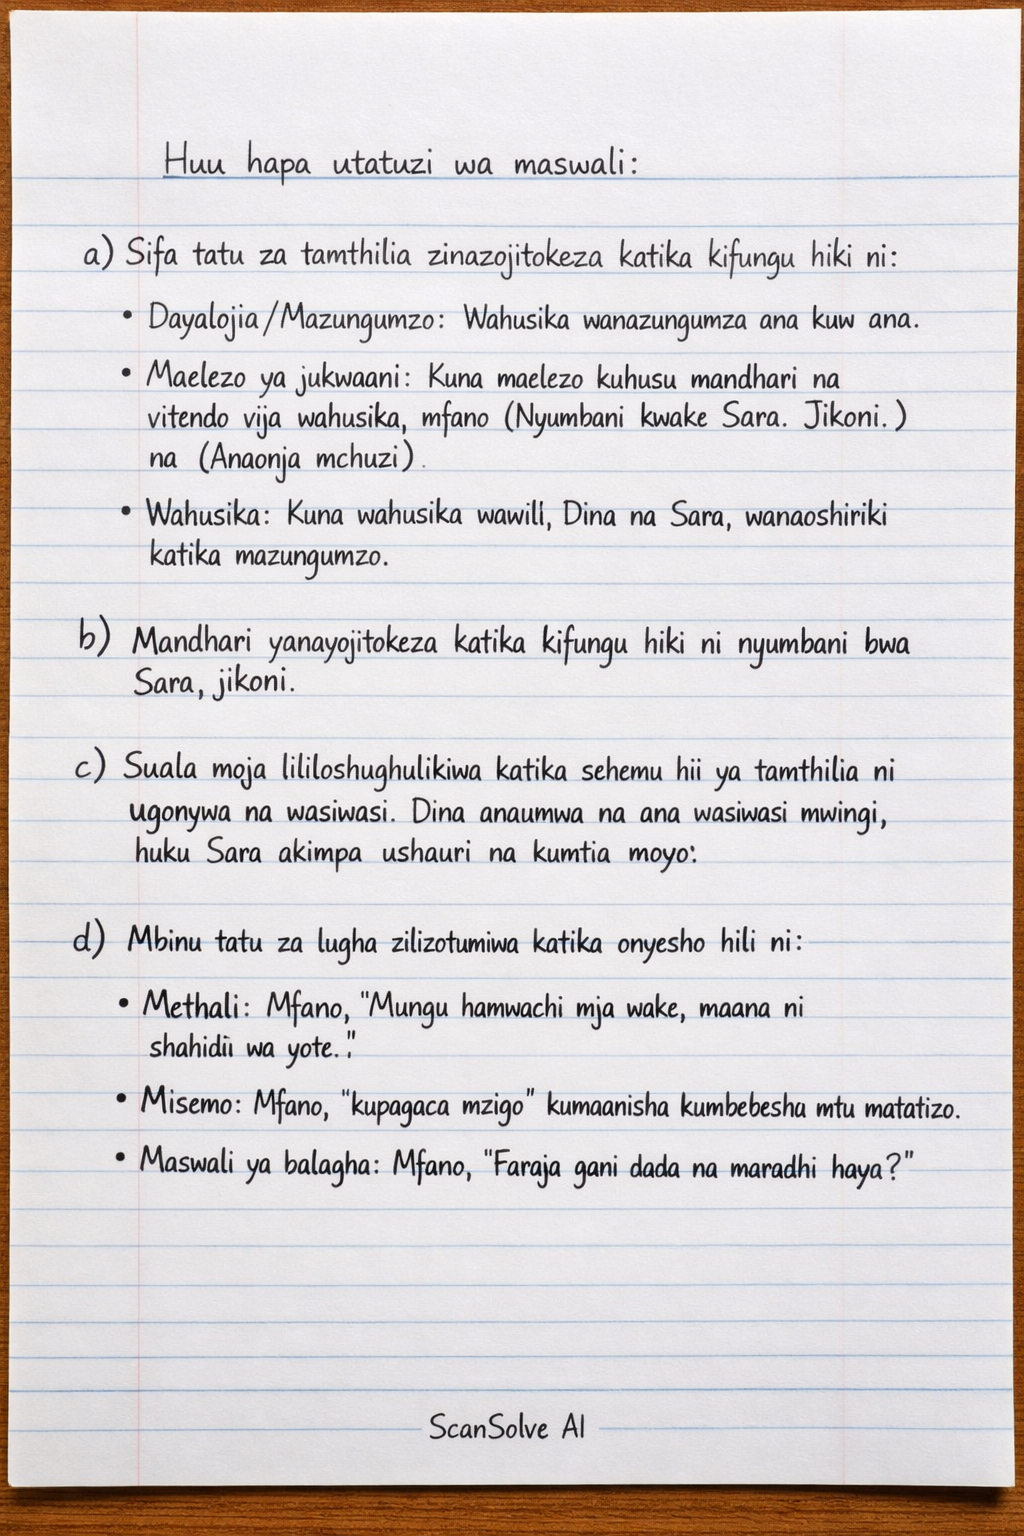 Huu hapa utatuzi wa maswali:
a) Sifa tatu za tamthilia zinazojitokeza katika kifungu hiki ni:
• Dayalojia/Mazungumzo: Wahusika wanazungumza ana kuw ana.
• Maelezo ya jukwaani: Kuna maelezo kuhusu mandhari na
vitendo vija wahusika, mfano (Nyumbani kwake Sara. Jikoni.)
na (Anaonja mchuzi).
• Wahusika: Kuna wahusika wawili, Dina na Sara, wanaoshiriki
katika mazungumzo.
b) Mandhari yanayojitokeza katika kifungu hiki ni nyumbani bwa
Sara, jikoni.
c) Suala moja lililoshughulikiwa katika sehemu hii ya tamthilia ni
ugonywa na wasiwasi. Dina anaumwa na ana wasiwasi mwingi,
huku Sara akimpa ushauri na kumtia moyo:
d) Mbinu tatu za lugha zilizotumiwa katika onyesho hili ni:
• Methali: Mfano, "Mungu hamwachi mja wake, maana ni
shahidii wa yote."
• Misemo: Mfano, "kupagaca mzigo" kumaanisha kumbebesha mtu matatizo.
• Maswali ya balagha: Mfano, "Faraja gani dada na maradhi haya?"
ScanSolve AI